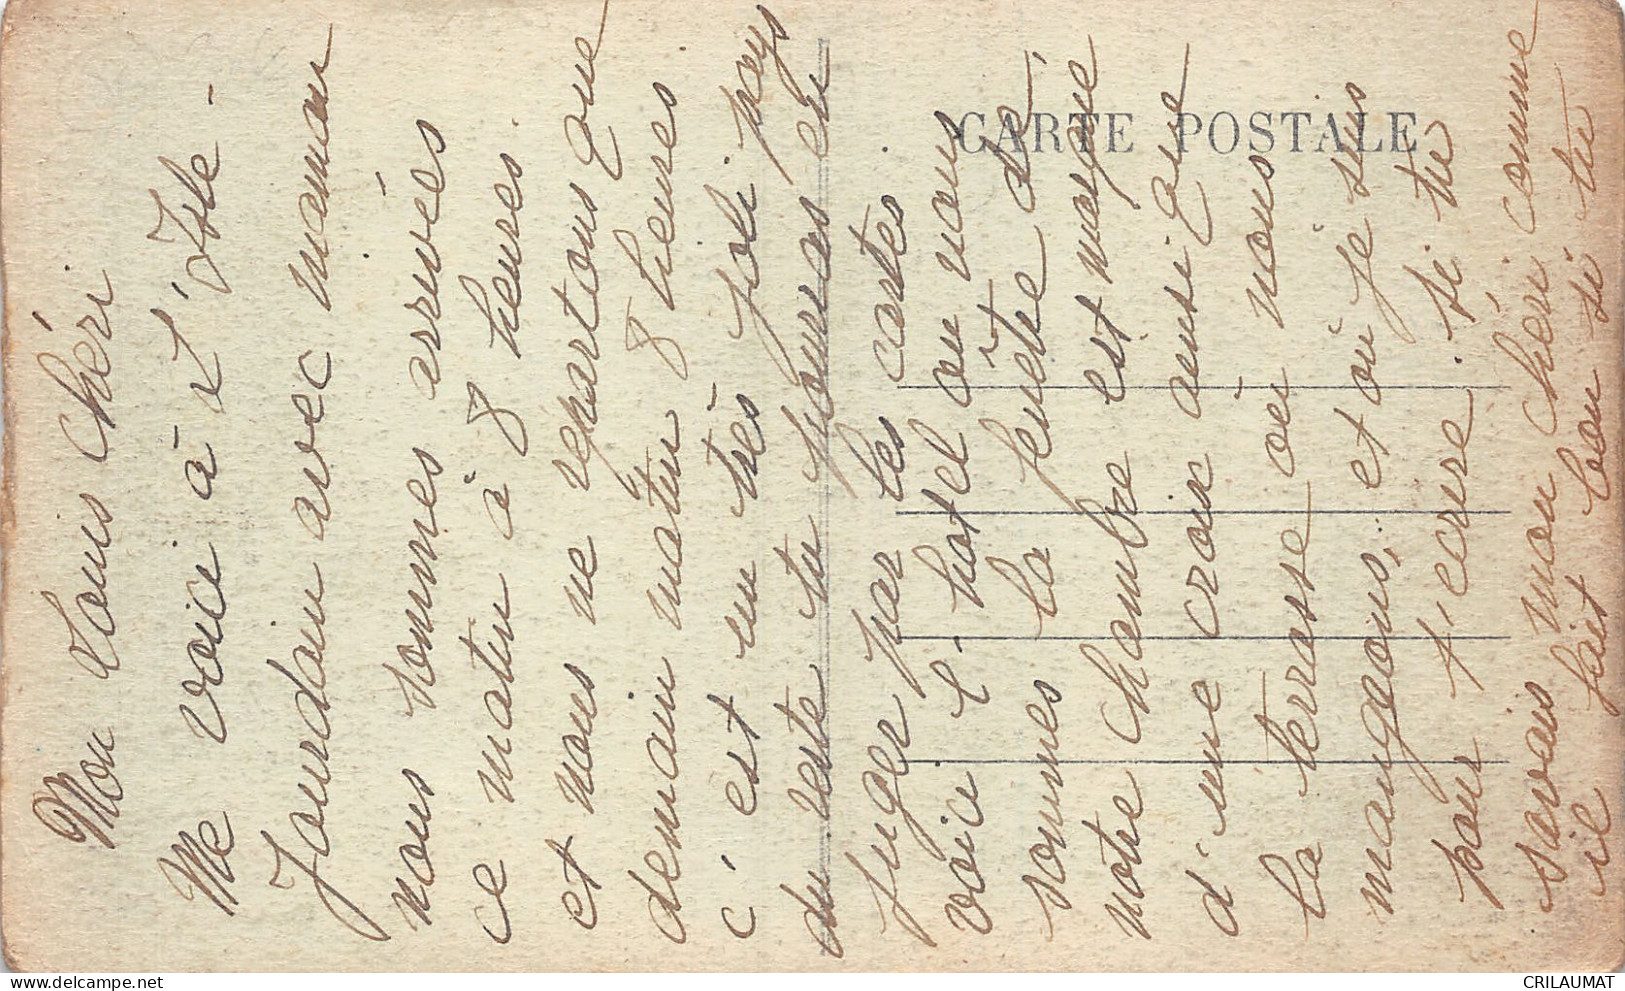 Mon Louis chéri
Me voici à L'Isle-
Jourdain avec maman
nous sommes arrivés
ce matin à 8 heures.
et nous ne repartons que
demain matin 8 heures
c'est un très joli pays
du reste tu pourras en
juger par les cartes
voici l'hotel ou nous
sommes la fenêtre de
notre chambre est marque
d'une croix ausi que
la terrasse où nous
mangeons, et où je suis
pour t'ecrire. si tu
savais mon chéri comme
il fait bon si tu
CARTE POSTALE
CRILAUMAT